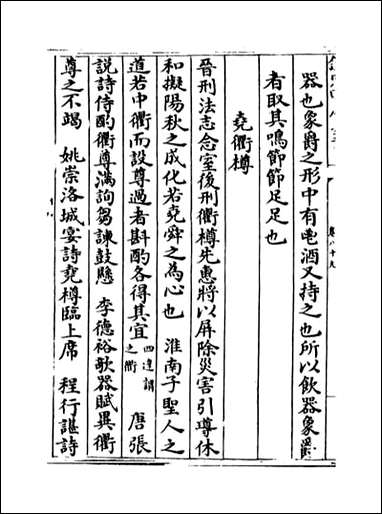 器也象爵之形中有鬯酒又持之也所以飲器象爵
者取其鳴節節足足也
堯衢樽
晉刑法志念室後刑衢樽先惠將以屏除災害引導休
和擬陽秋之成化若堯舜之為心也 淮南子聖人之
道若中衢而設尊過者斟酌各得其宜 四達謂之衢 唐張
說詩侍酌衢尊滿詢芻諫鼓懸 李德裕欹器賦異衢
尊之不竭 姚崇洛城宴詩堯樽臨上席 程行諶詩